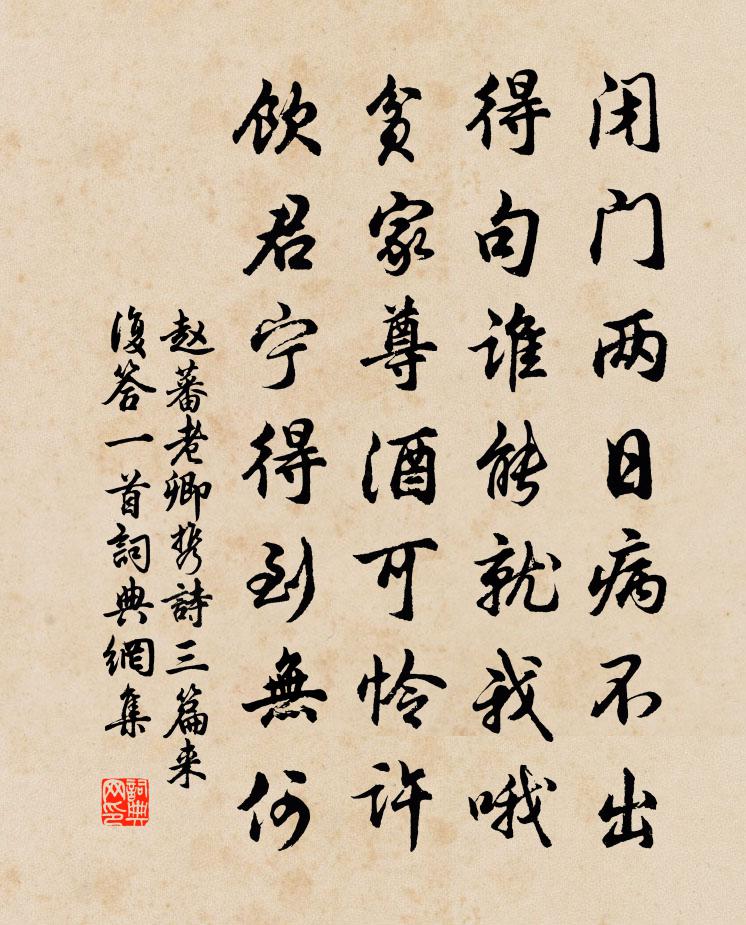 闭门两日病不出
得句谁能就我哦
贫家尊酒可怜许
饮君宁得到無何
赵蕃老卿携詩三篇来
復答一首詞典網集
詞典
网印